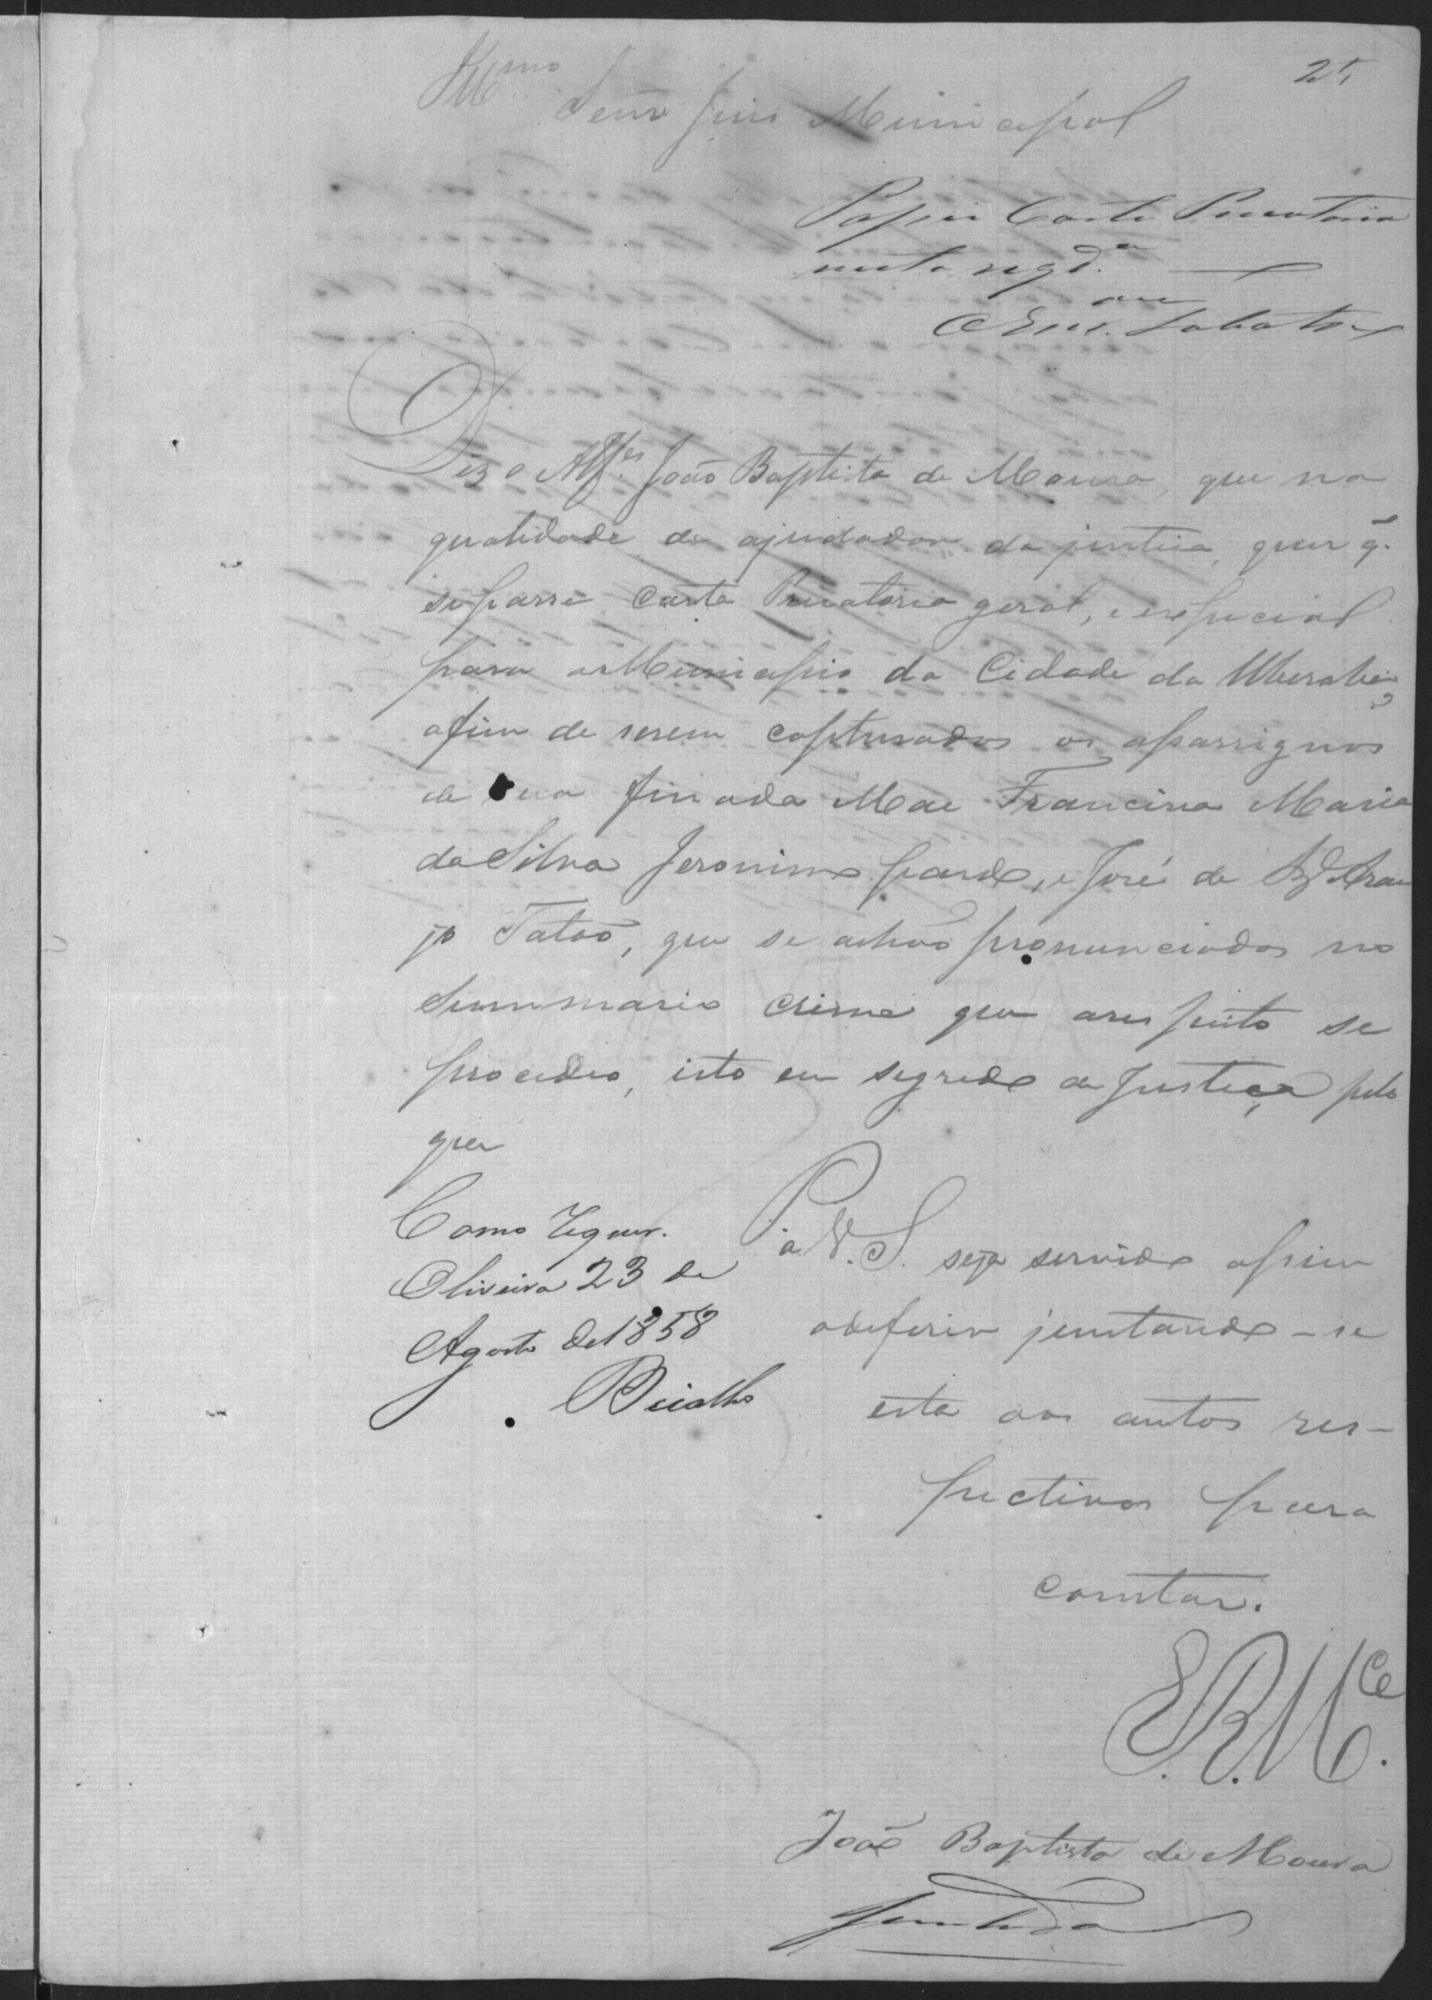 Illmo
Senr Juis Municipal
Passei Carta Precatoria
nesta regda
Diz o Alfes João Baptista de Moura, que na
qualidade de ajudador da justica, quer q.
se passe Carta Precatoria geral, e especial
para o Municipio da Cidade da Uberaba,
afim de serem capturados os assassignos
de sua finada Mae Francisca Maria
da Silva Jeronimo pardo, e José de Arau
jo Tatão, que se achão pronunciados no
Summario crime que arespeito se
procedeo, isto em segredo de Justiça pelo
que
Como requer.
Oliveira 23 de
Agosto de 1858
P.
a V.S. seja servido assim
odeferir juntando-se
esta aos autos res-
pectivos para
constar.
E.R.Mce.
João Baptista de Moura